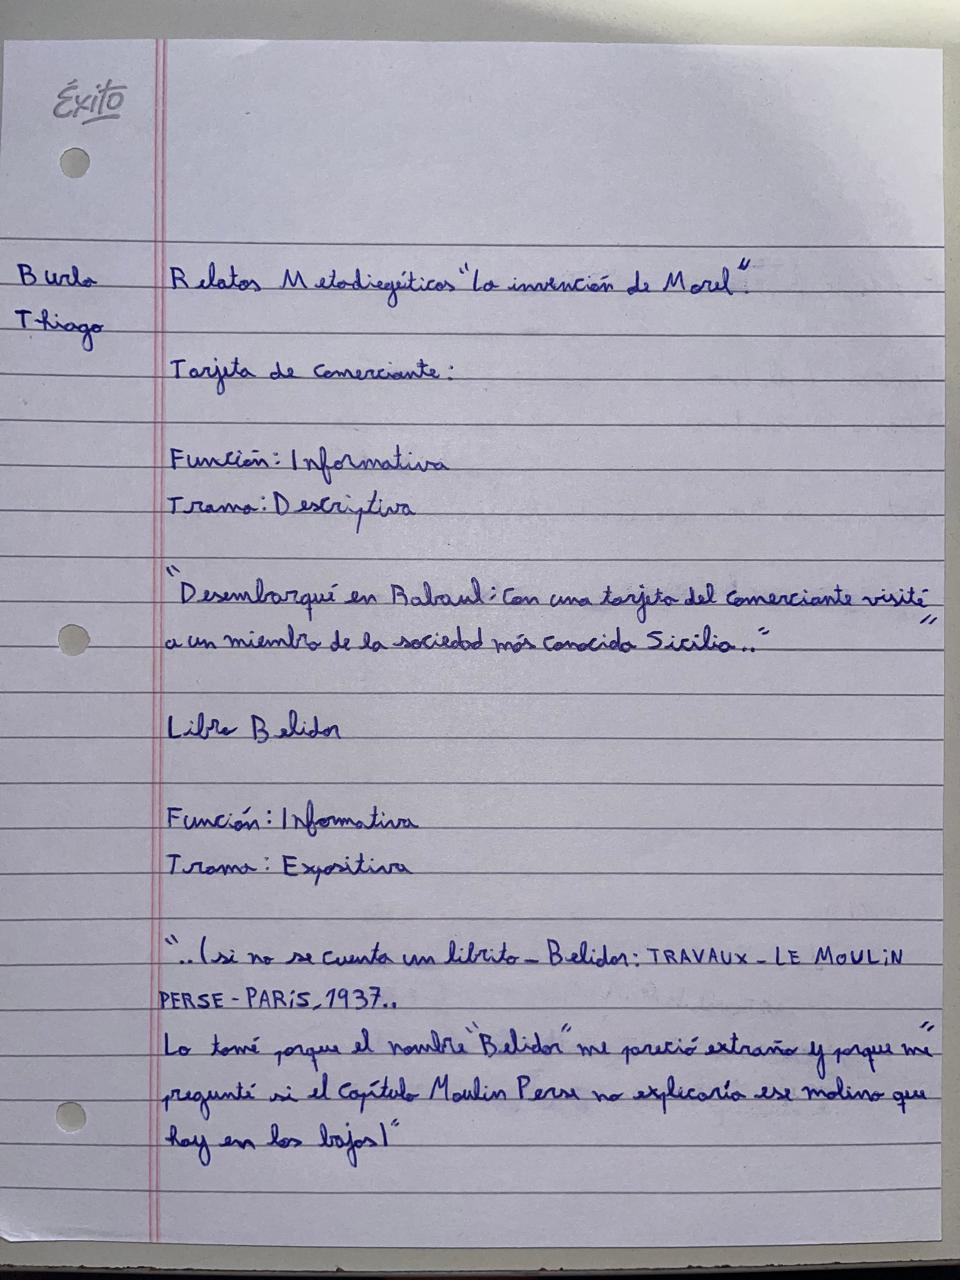 Éxito
Burla
Thiago
Relatos Metadiegéticos "La invención de Morel".
Tarjeta de comerciante:
Función: Informativa
Trama: Descriptiva
"Desembarqué en Rabaul; con una tarjeta del comerciante visité "
a un miembro de la sociedad más conocida Sicilia.."
Libro Belidor
Función: Informativa
Trama: Expositiva
"..(si no se cuenta un librito - Belidor: TRAVAUX - LE MOULIN
PERSE - PARIS, 1937..
Lo tomé porque el nombre "Belidor" me pareció extraño y porque me "
pregunté si el Capítulo Moulin Perse no explicaría ese molino que
hay en los bajos)"